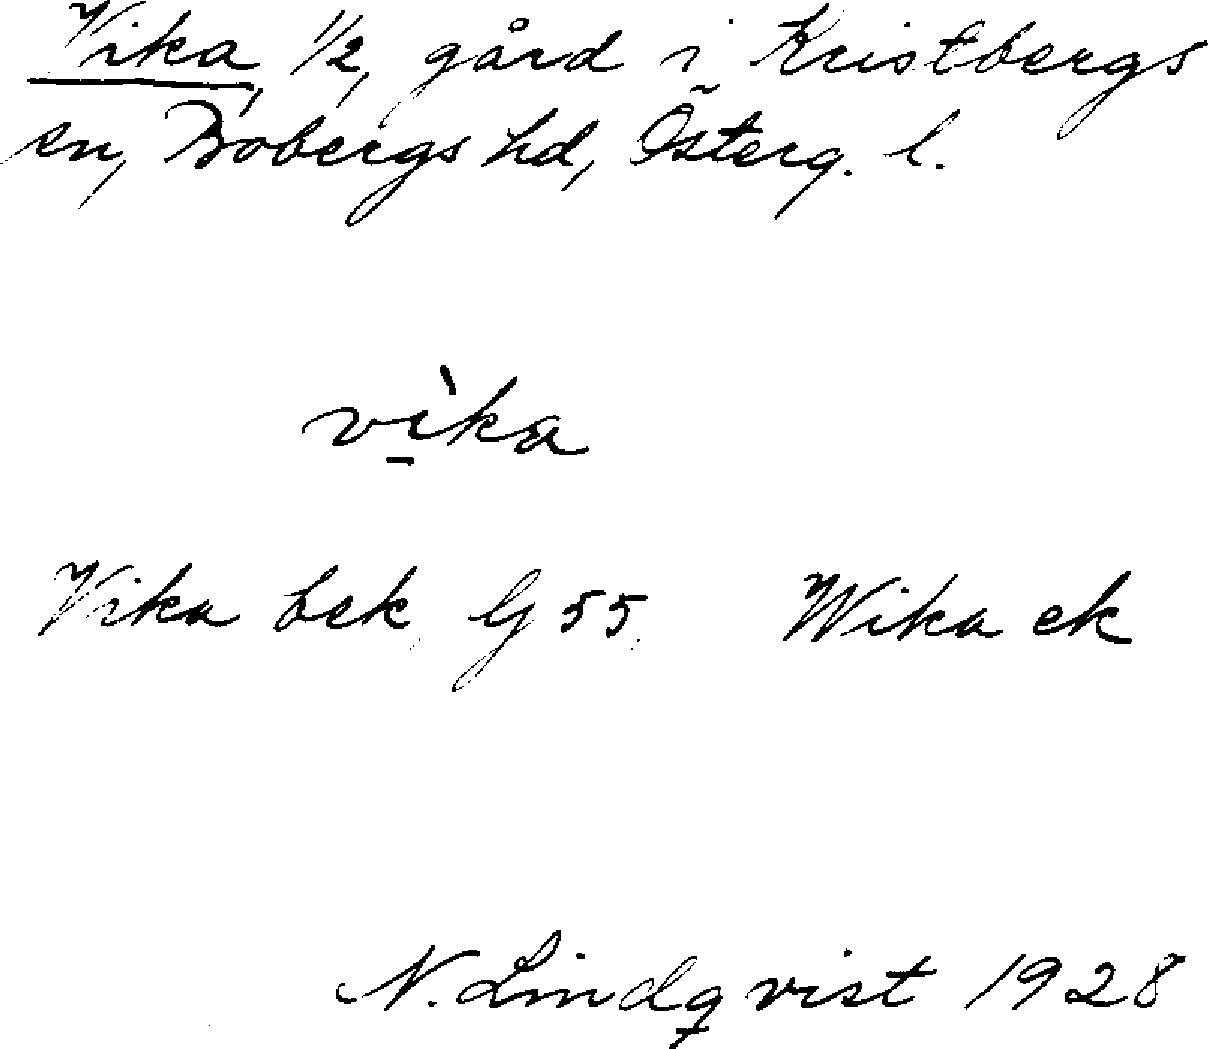 Vika, 1/2, gård i Kristbergs
sn, Bobergs hd, Österg. l.
vìka
Vika bek G 55. Wika ek
N. Lindqvist 1928